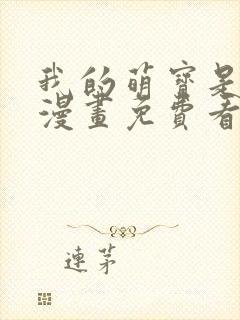 我的萌寶是
漫畫免費看
連茅